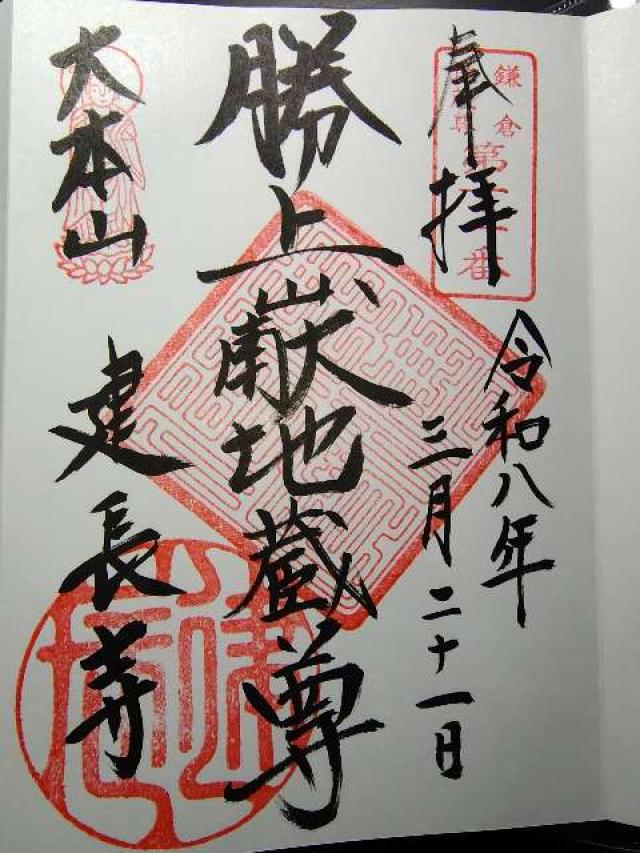 奉拝
鎌倉
第
番
令和八年
三月二十一日
勝上巘地蔵尊
大本山
建長寺